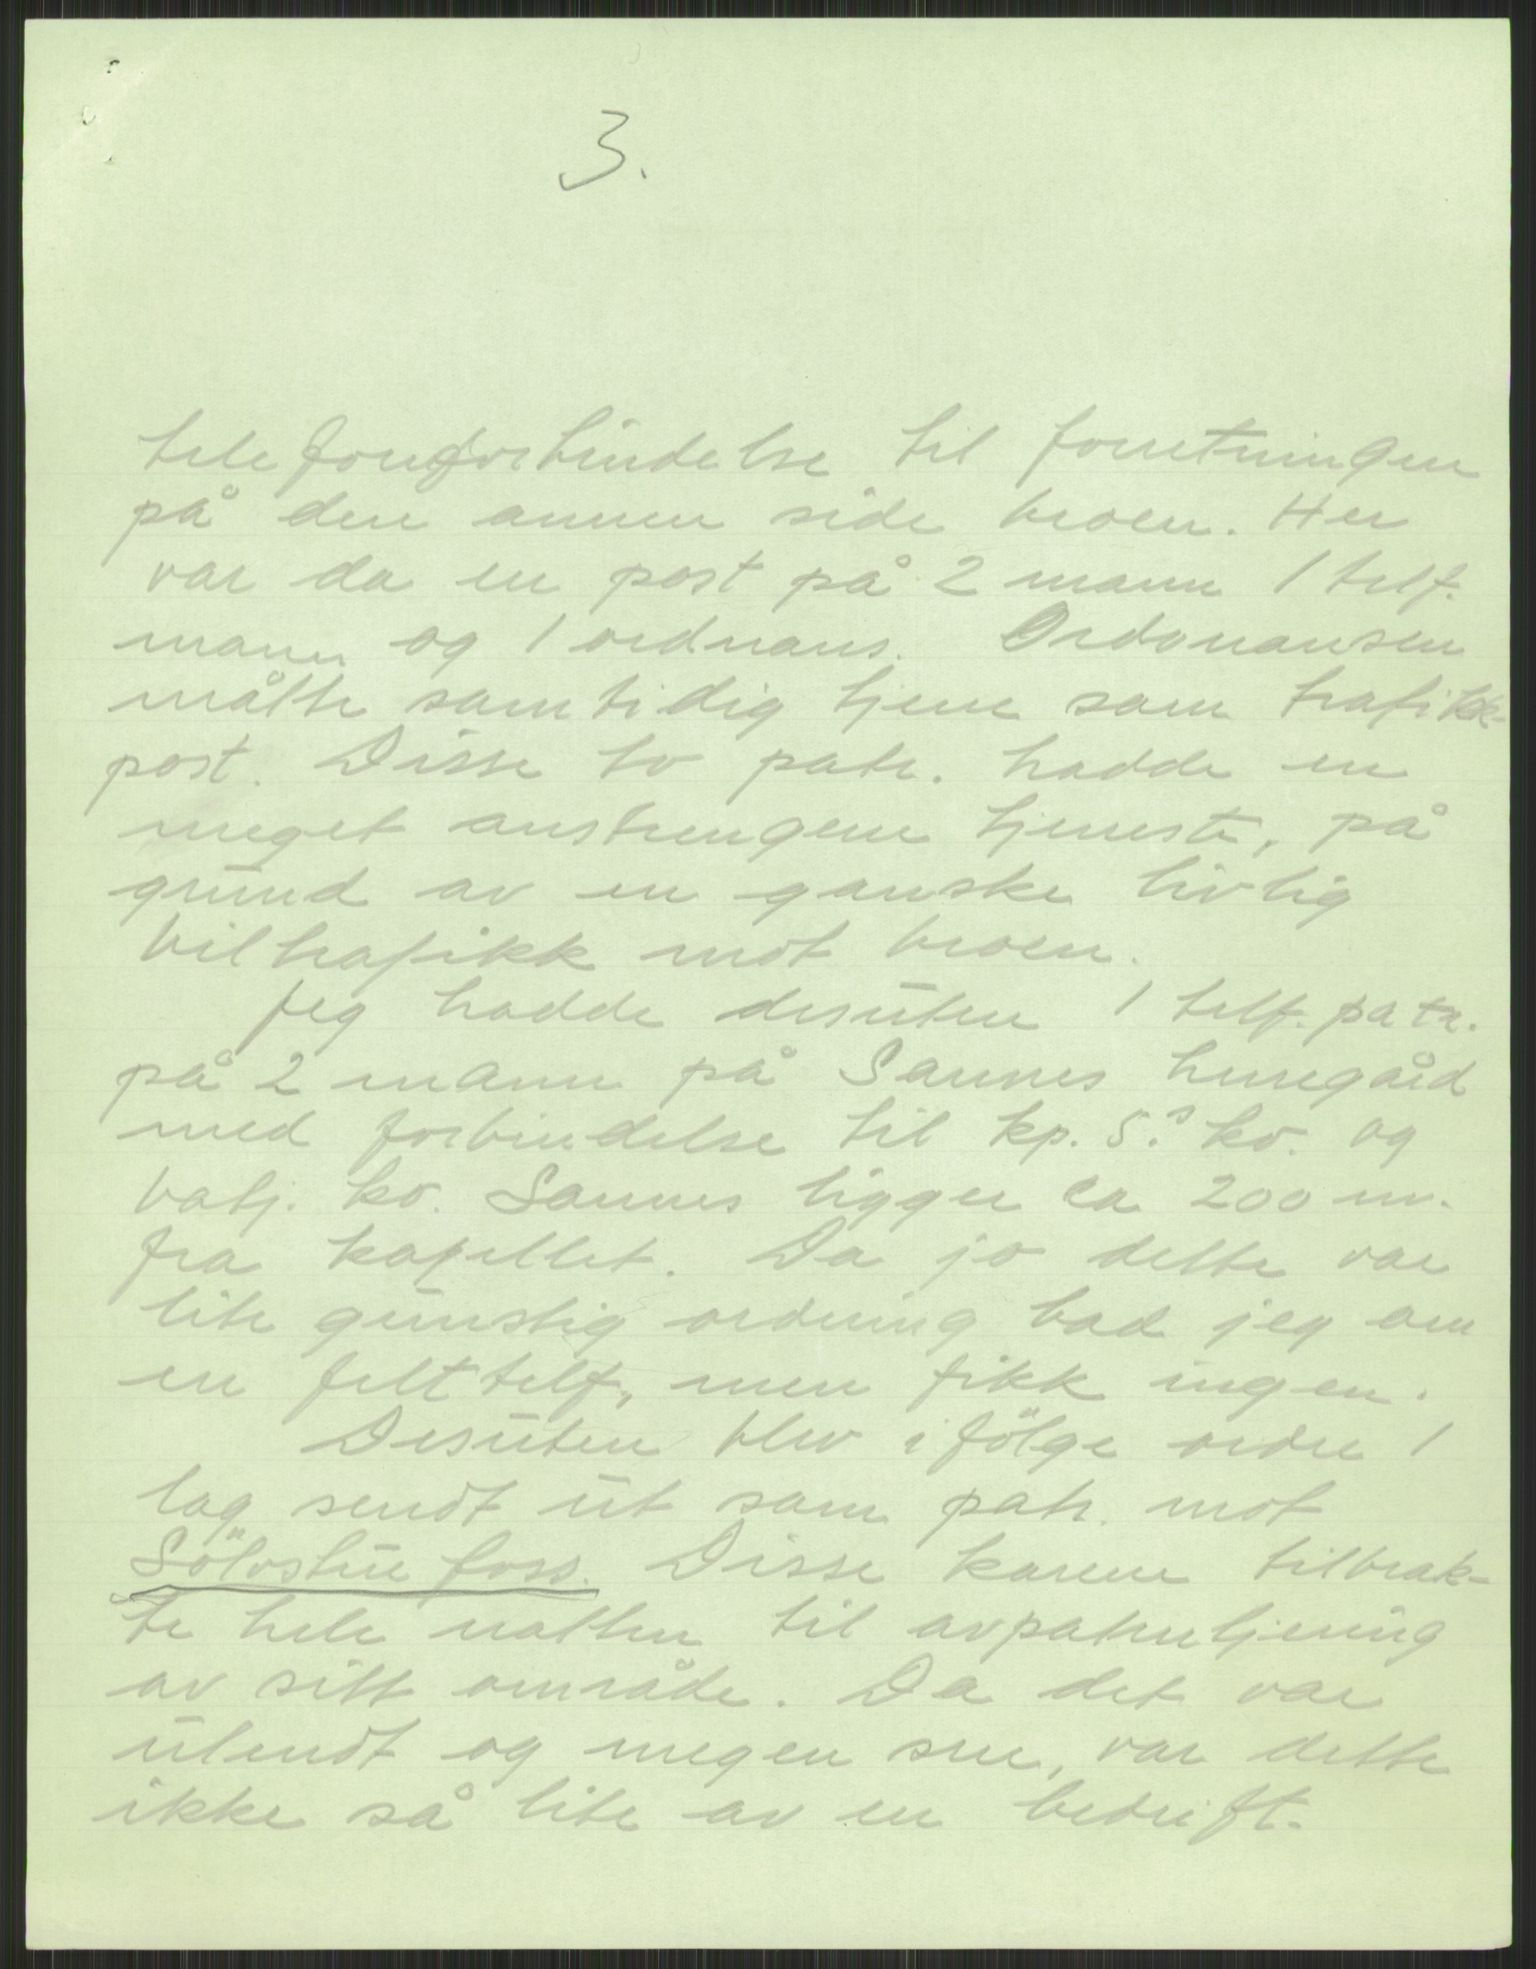 3.
telefonforbindelse til forretningen
på den annen side broen. Her
var da en post på 2 mann 1 telf.
mann og 1 ordnans. Ordonansen
måtte samtidig tjene som trafikk-
post. Disse to patr. hadde en
meget anstrengene tjeneste, på
grund av en ganske livlig
biltrafikk mot broen.
Jeg hadde desuten 1 telf. patr.
på 2 mann på Sannes
med forbindelse til kp. 5.s ko. og
batj. ko. Sannes ligger ca 200 m.
fra kapellet. Da jo dette var
lite gunstig ordning bad jeg om
en felttelf, men fikk ingen.
Desuten blev ifölge ordre 1
lag sendt ut som patr. mot
Sölvstufoss. Disse karene tilbrak-
te hele natten til avpatruljering
av sitt område. Da det var
ulendt og megen sne, var dette
ikke så lite av en bedrift.